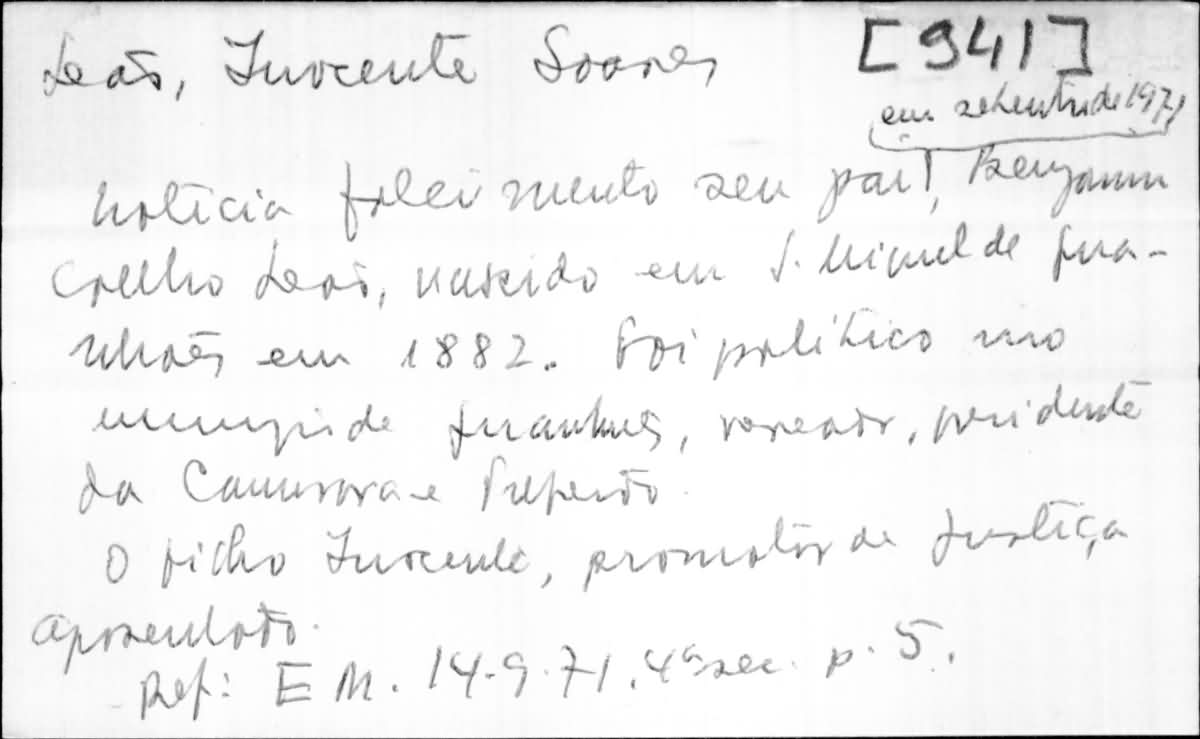 Leão, Inocente Soares [941]
em setembro de 1971
Notícia falecimento seu pai, Benjamin
Coelho Leão, nascido em S. Miguel de Gua-
nhães em 1882. Foi político no
município de Guanhães, vereador, presidente
da Camara e Prefeito.
O filho Inocente, promotor de Justiça
aposentado.
Ref: E M. 14-9-71. 4ª sec. p. 5.